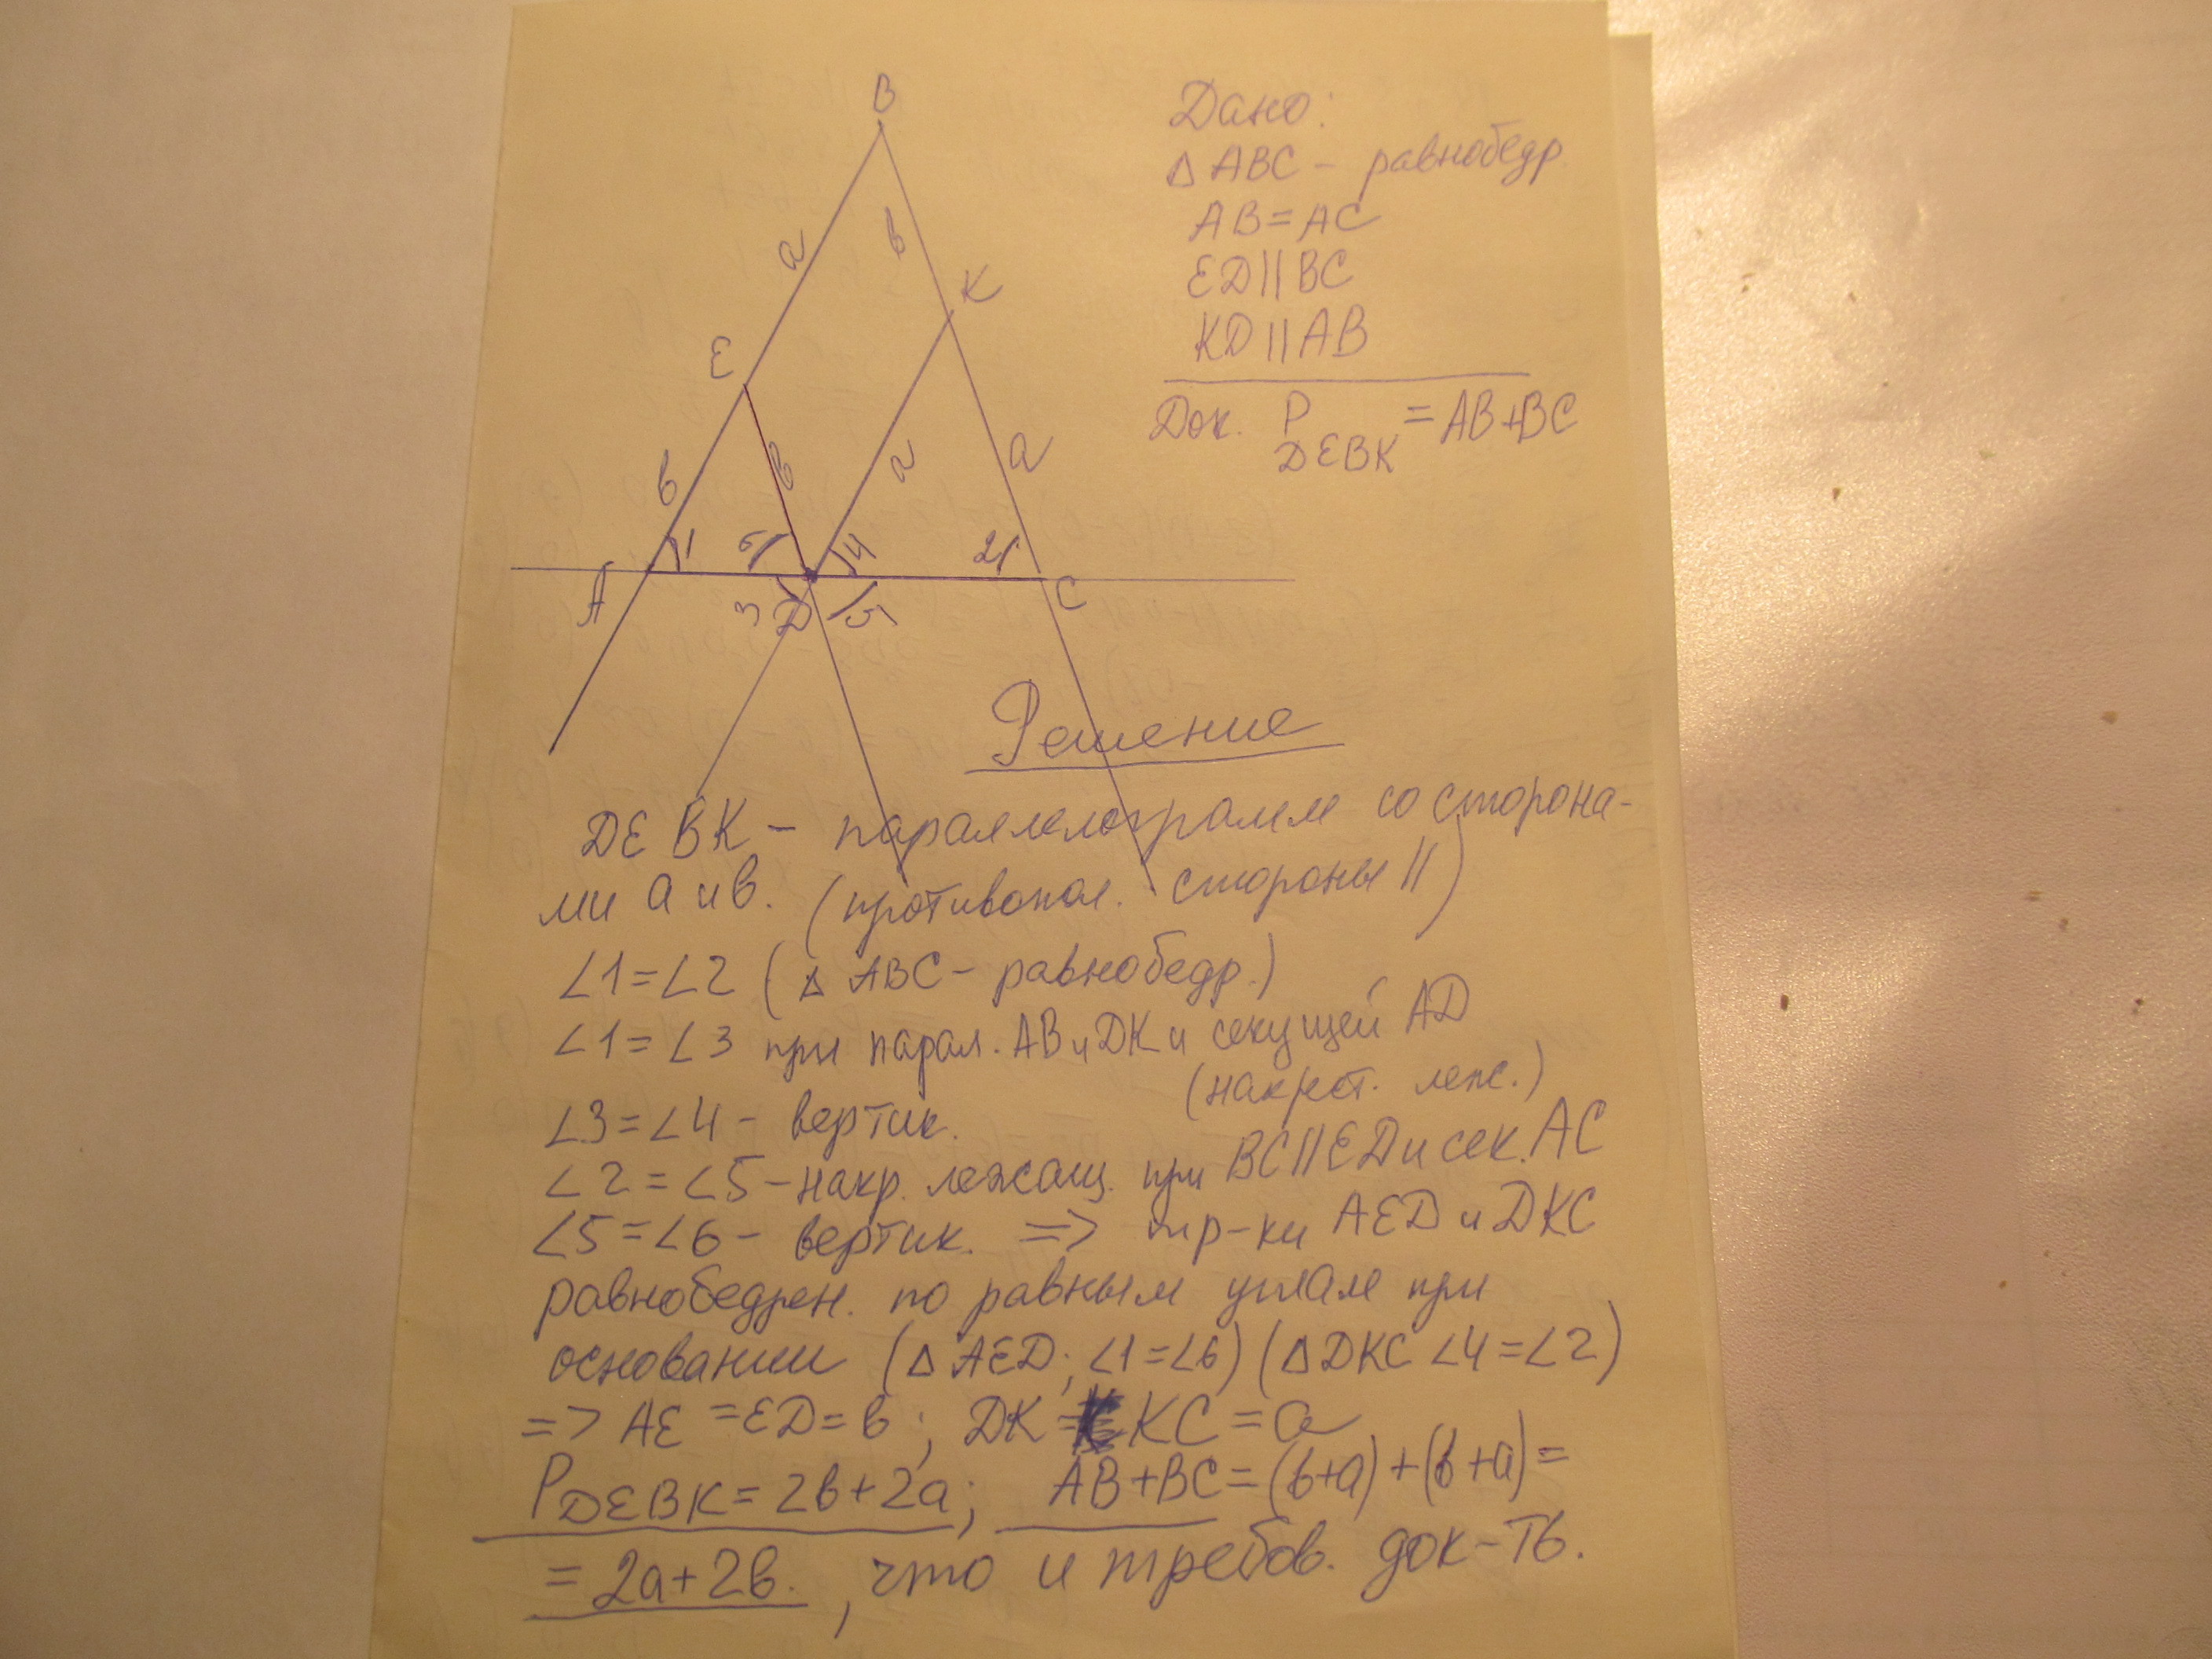 B
a
в
K
E
a
в
в
a
1
6
4
2
A
3
D
5
C
Дано:
△ ABC - равнобедр.
AB = AC
ED || BC
KD || AB
Док. P DEBK = AB+BC
Решение
DEBK - параллелограмм со сторона-
ми a и в. (противопол. стороны ||)
∠1=∠2 (△ ABC - равнобедр.)
∠1=∠3 при парал. AB и DK и секущей AD
(накрест. леж.)
∠3=∠4 - вертик.
∠2=∠5 - накр. лежащ. при BC||ED и сек. AC
∠5=∠6 - вертик. => тр-ки AED и DKC
равнобедрен. по равным углам при
основании (△ AED; ∠1=∠6) (△ DKC ∠4=∠2)
=> AE = ED = в; DK = KC = a
P DEBK = 2в+2a; AB+BC = (в+a)+(в+a) =
= 2a+2в. , что и требов. док-ть.